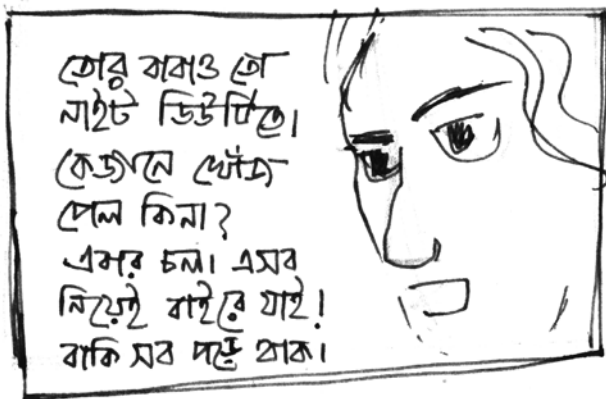 তোর বাবাও তো
নাইট ডিউটিতে।
কেজানে খোঁজ
পেল কিনা?
এবার চল। এসব
নিয়েই বাইরে যাই!
বাকি সব পড়ে থাক।